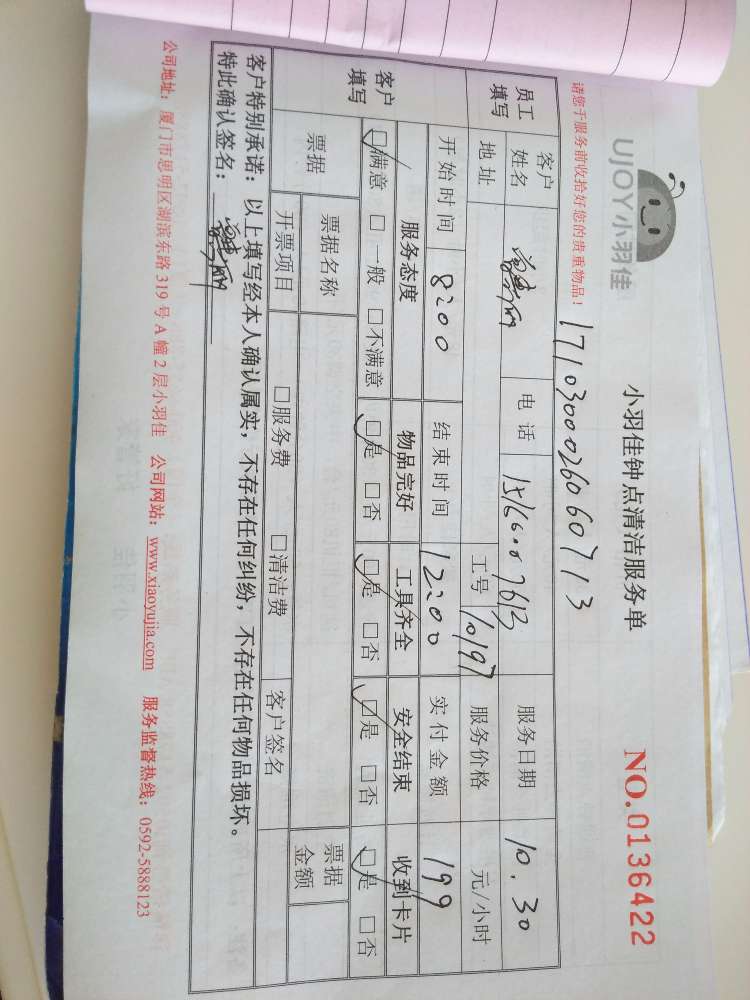 UJOY小羽佳
小羽佳钟点清洁服务单
NO.0136422
请您于服务前收拾好您的贵重物品！
1710300026060713
员工填写 客户姓名 电话 服务日期 10.30
地址 工号 10197 服务价格 元/小时
开始时间 8:00 结束时间 12:00 实付金额 199
客户填写 服务态度 物品完好 工具齐全 安全结束 收到卡片
☑满意 □一般 □不满意 ☑是 □否 ☑是 □否 ☑是 □否 ☑是 □否
票据 票据名称 票据金额
开票项目 □服务费 □清洁费 客户签名
客户特别承诺：以上填写经本人确认属实，不存在任何纠纷，不存在任何物品损坏。
特此确认签名：
公司地址：厦门市思明区湖滨东路 319 号 A 幢 2 层小羽佳 公司网站：www.xiaoyujia.com 服务监督热线：0592-5888123